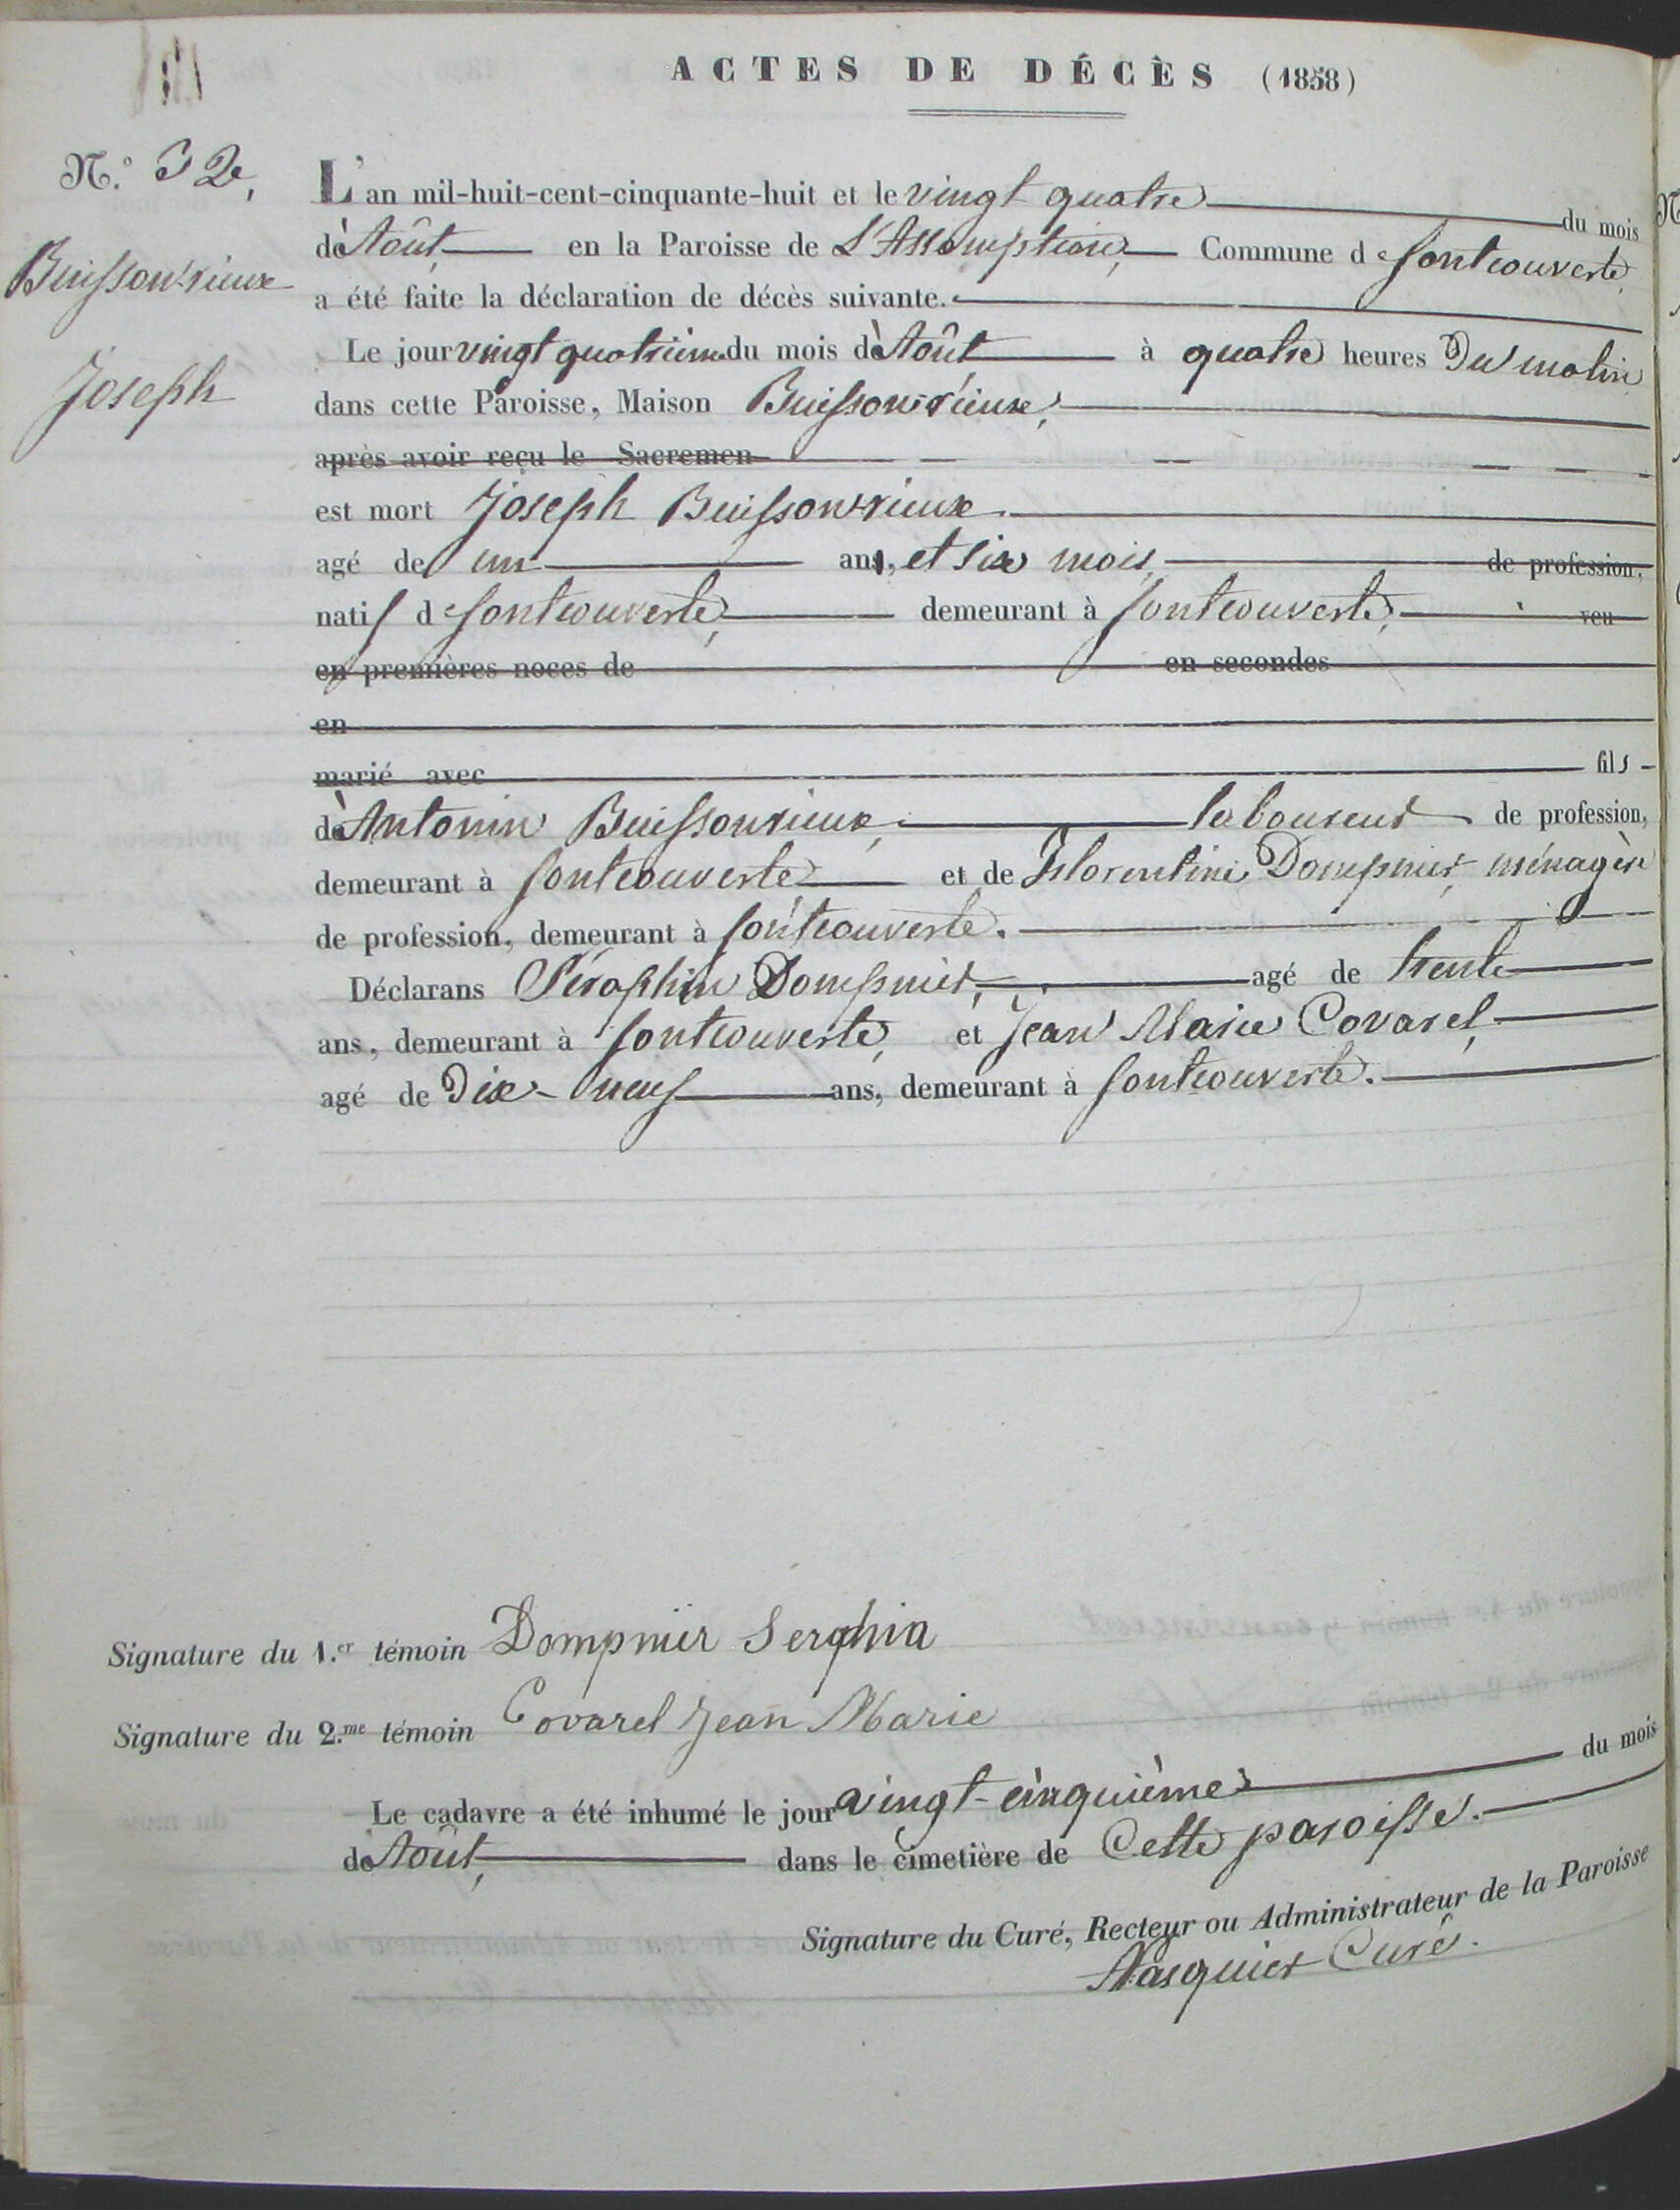 ACTES DE DÉCÈS (1858)
N.º 32,
Buisson-rieux
Joseph
L'an mil-huit-cent-cinquante-huit et le vingt quatre du mois
d'Août, en la Paroisse de L'Assomption, Commune de fontcouverte,
a été faite la déclaration de décès suivante.
Le jour vingt quatrieme du mois d'Août à quatre heures Du matin
dans cette Paroisse, Maison Buisson-rieux,
après avoir reçu le Sacremen
est mort Joseph Buisson-rieux.
agé de un ans, et six mois, de profession,
natif de fontcouverte, demeurant à fontcouverte, veu
en premières noces de en secondes
en
marié avec fils
d'Antonin Buisson rieux, laboureur de profession,
demeurant à fontcouverte et de Florentine Dompnier, ménagère
de profession, demeurant à fontcouverte.
Déclarans Séraphin Dompnier, agé de trente
ans, demeurant à fontcouverte, et Jean Marie Covarel,
agé de Dix-neuf ans, demeurant à fontcouverte.
Signature du 1.er témoin Dompnier Serphin
Signature du 2.me témoin Covarel Jean Marie
Le cadavre a été inhumé le jour vingt-cinquième du mois
de Août, dans le cimetière de Cette paroisse.
Signature du Curé, Recteur ou Administrateur de la Paroisse
Curé.